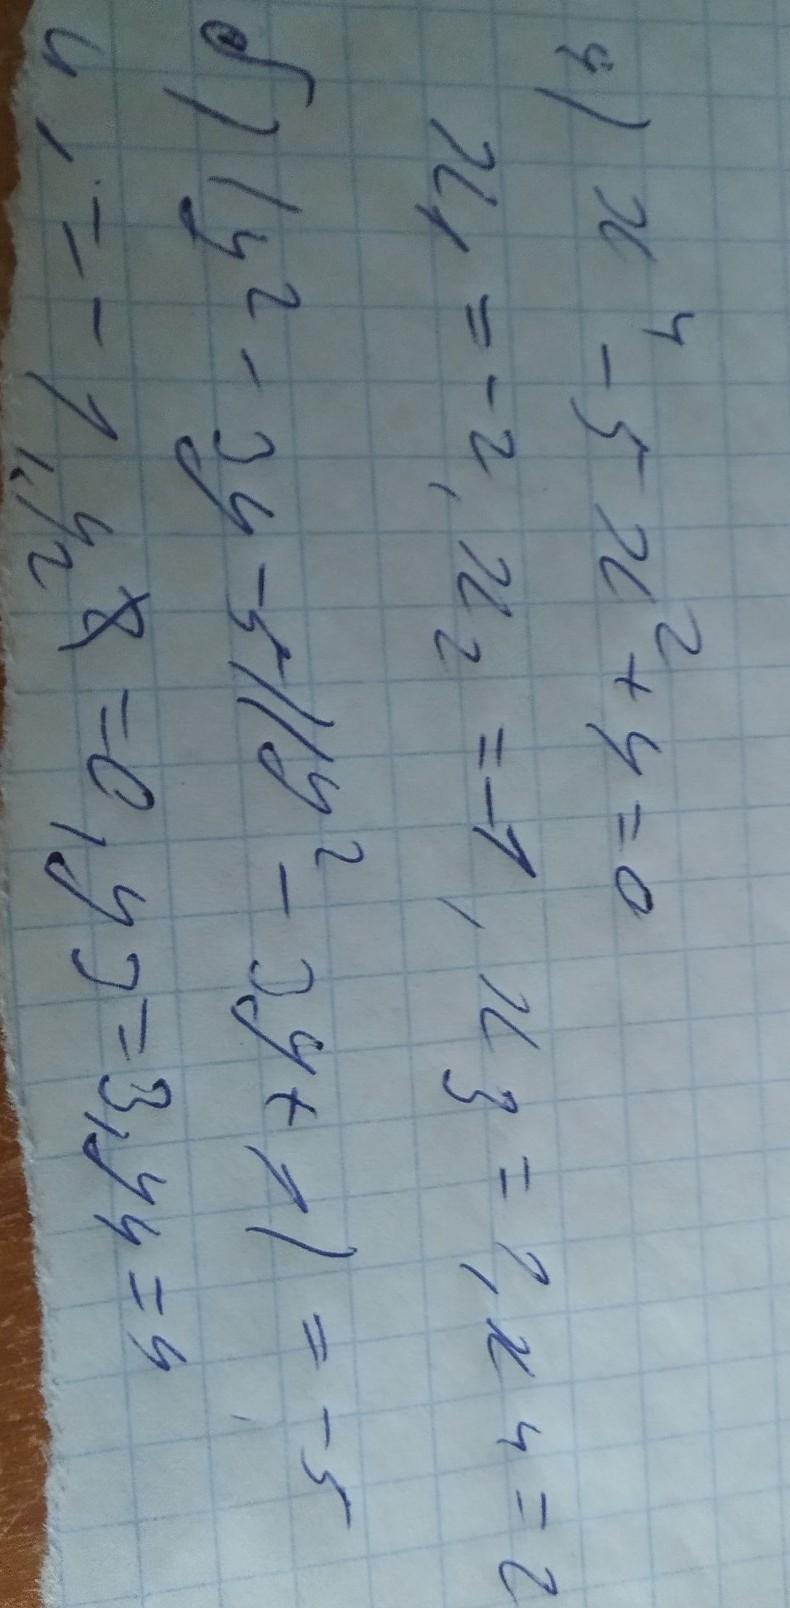 а) x⁴ - 5x² + 4 = 0
x₁ = -2, x₂ = -1, x₃ = 1, x₄ = 2
б) (y² - 3y - 5)(y² - 3y + 1) = -5
y₁ = -1, y₂ = 0, y₃ = 3, y₄ = 4